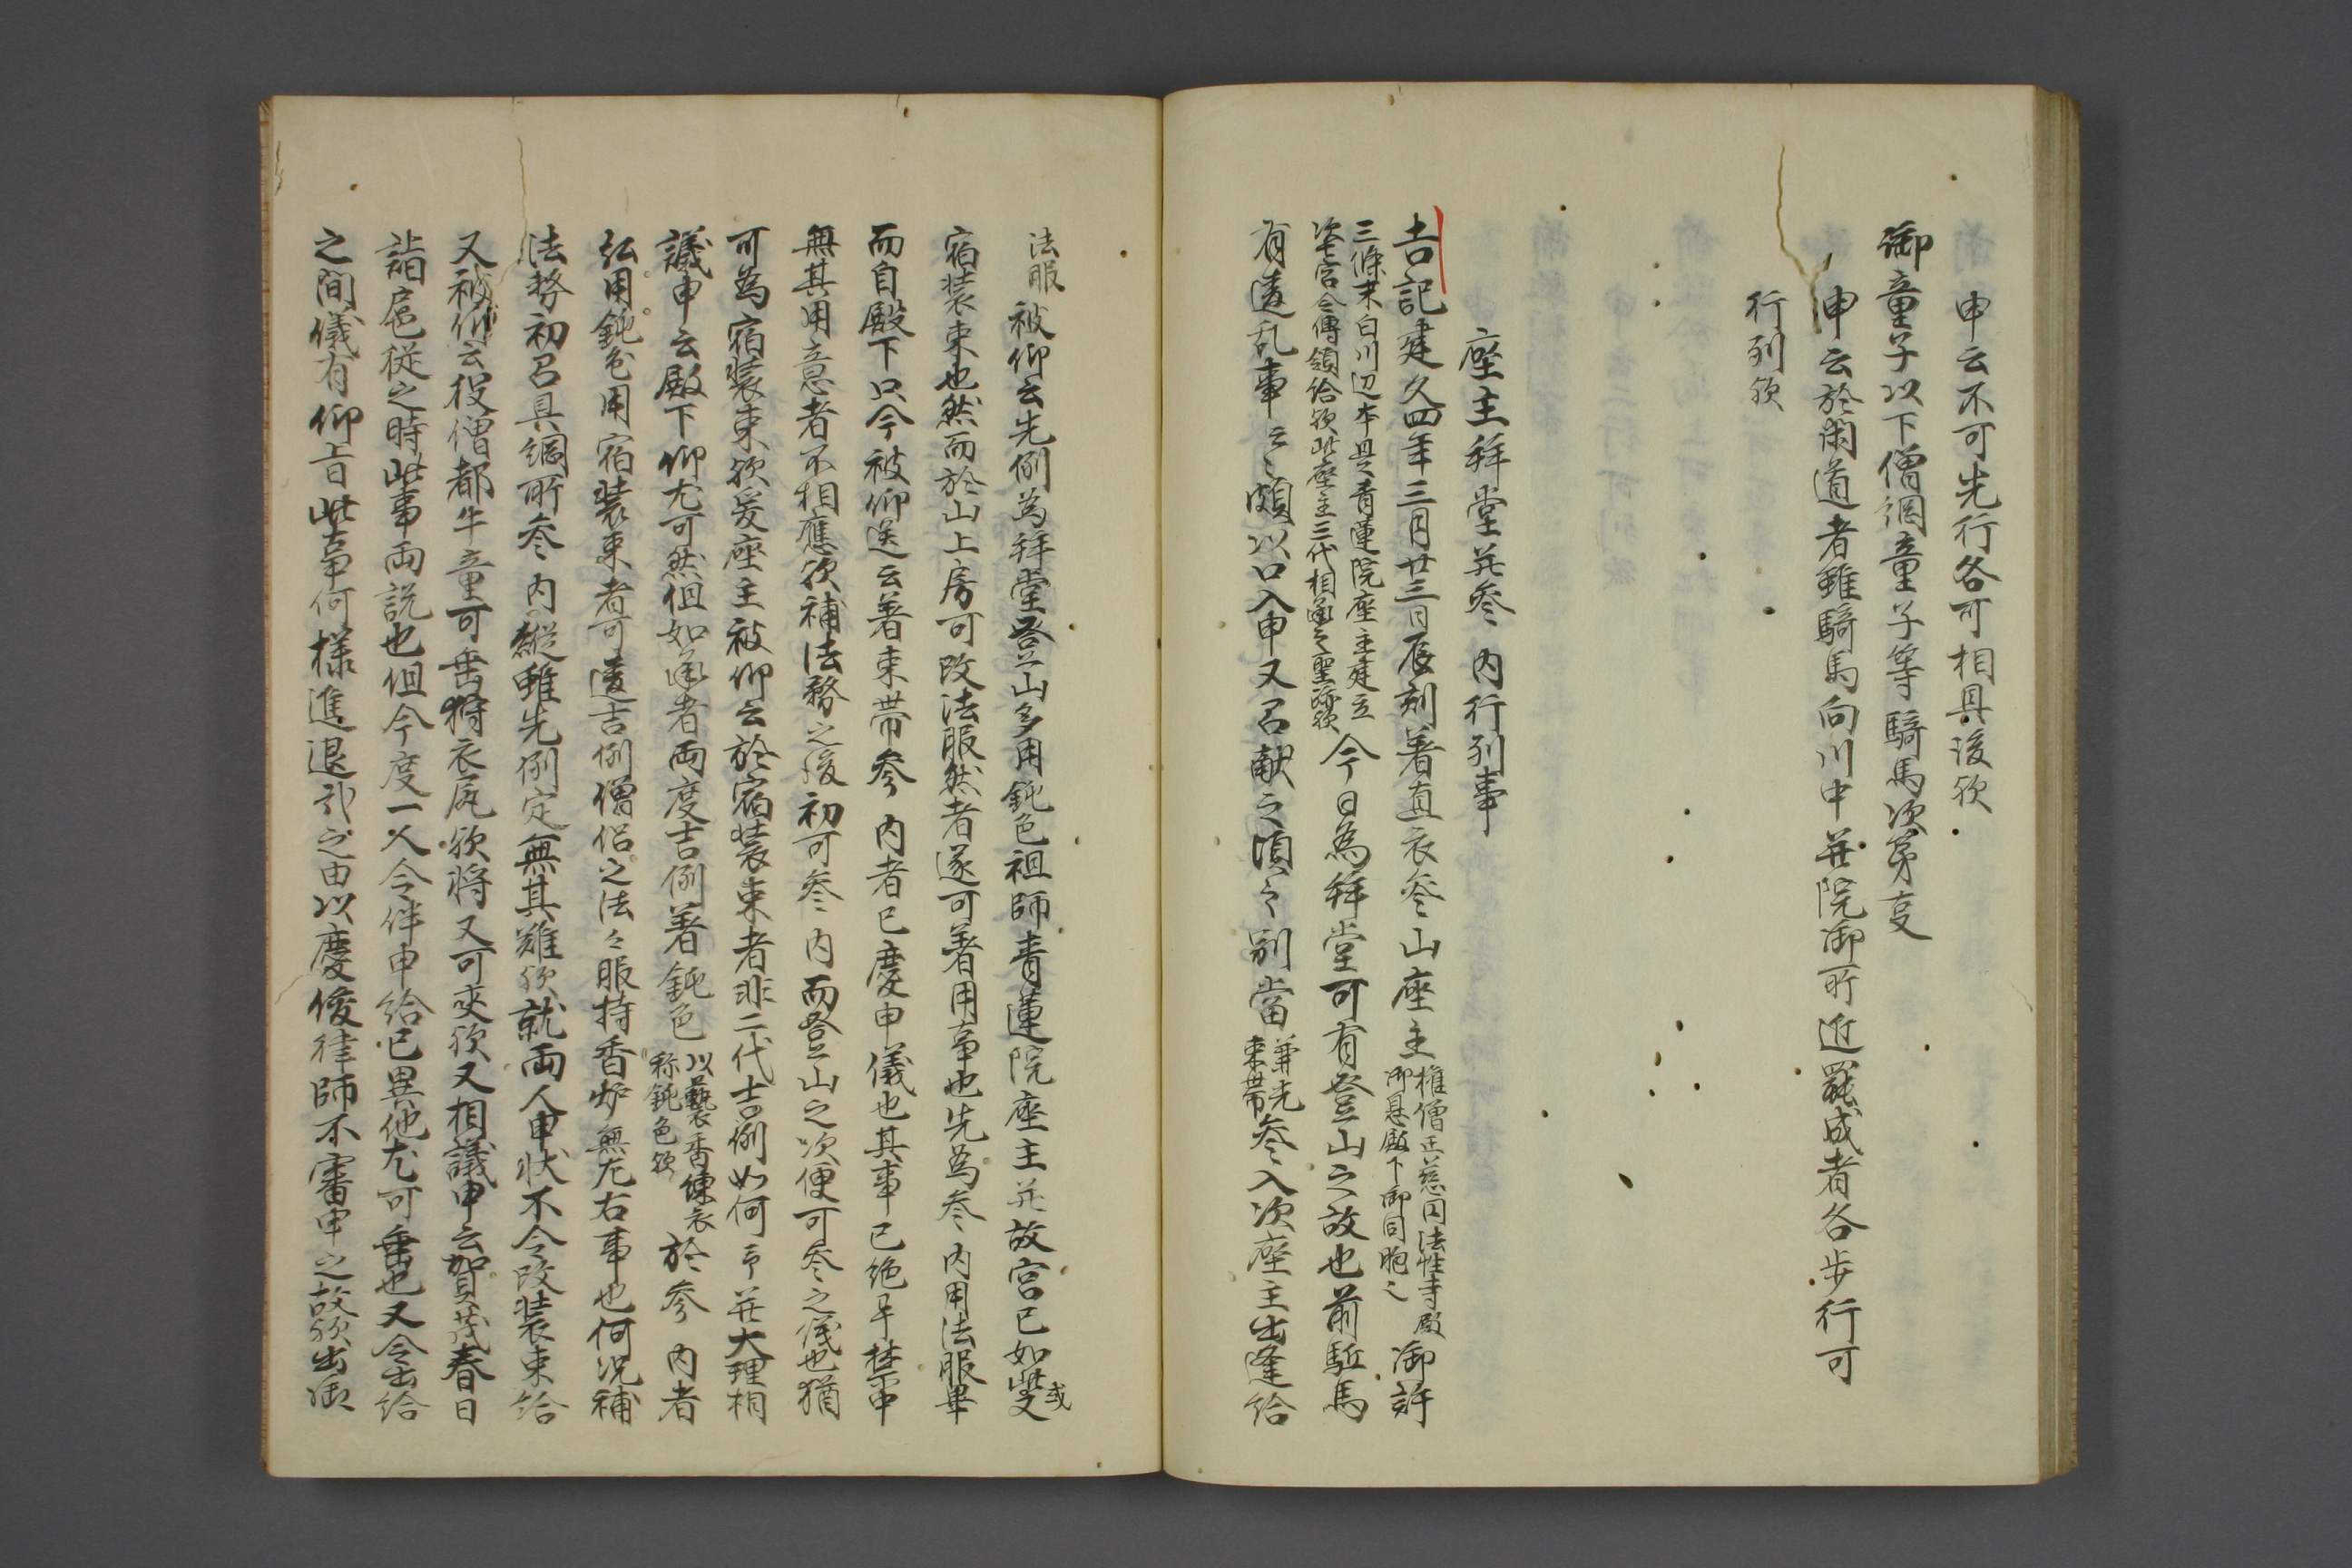 申云不可先行各可相具後欤
御童子以下僧綱童子等騎馬次第事
申云於閑道者雖騎馬向川中并院御所近罷成者各歩行可
行列欤
座主拝堂并参 内行列事
吉記建久四年三月廿三日辰刻著直衣参山座主
権僧正慈円法性寺殿
御息殿下御同胞也
御許
三條末白川辺本是青蓮院座主建立
次七宮令傳領給欤此座主三代相承之聖跡欤
今日為拝堂可有登山之故也前駈馬
有違乱事云々頗以口入申又召献之須之別當
兼光
束帯
参入次座主出逢給
法服
被仰云先例為拝堂登山多用鈍色祖師青蓮院座主并故宮已如此又
或
宿装束也然而於山上房可改法服然者遂可著用事也先為参 内用法服畢
而自殿下只今被仰送云著束帯参 内者已慶申儀也其事已絶早禁中
無其用意者不相應欤補法務之後初可参 内而登山之次便可参之儀也猶
可為宿装束欤爰座主被仰云於宿装束者非二代吉例如何予并大理相
議申云殿下仰尤可然但如承者両度吉例著鈍色
以藝香練衣
称鈍色欤
於参 内者
弘用鈍色用宿装束者可違吉例僧侶之法々服持香炉無左右事也何況補
法務初召具綱所参 内縦雖先例定無其難欤就両人申状不令改装束給
又被仰云役僧都牛童可垂狩衣尻欤将又可夾欤又相議申云賀茂春日
詣扈従之時此事両説也但今度一人令伴申給已異他尤可垂也又令出給
之間儀有仰旨此事何様進退哉之由以慶俊律師不審申之故欤出御